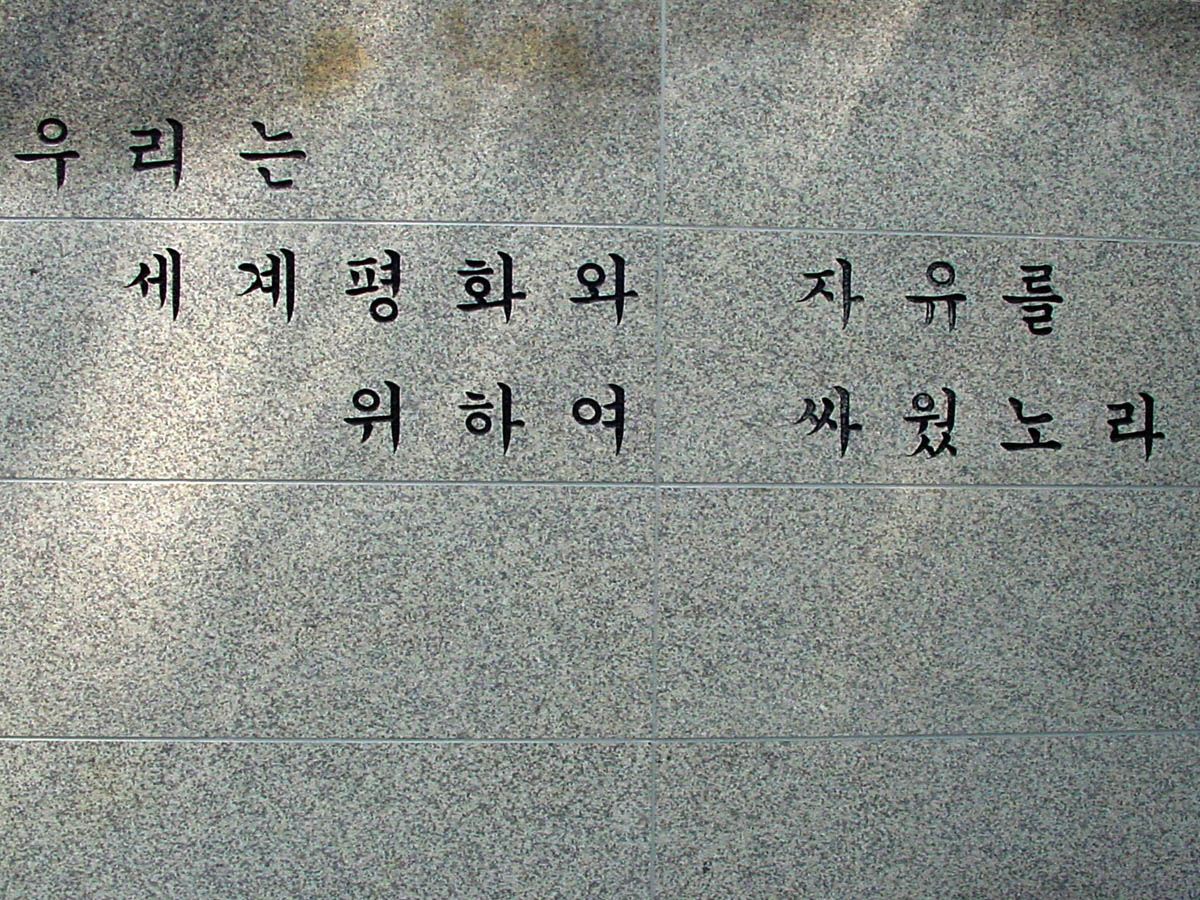 우리는
세계평화와 자유를
위하여 싸웠노라